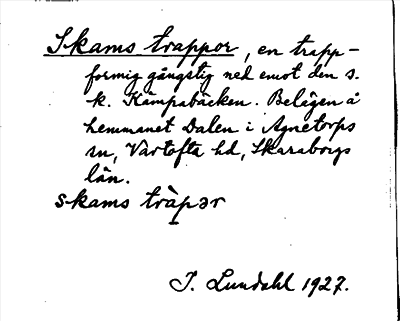 Skams trappor, en trapp-
formig gångstig ned emot den s.
k. Kämpabäcken. Belägen å
hemmanet Dalen i Agnetorps
sn, Vartofta hd, Skaraborgs
län.
skams tràpər
J. Lundahl 1927.